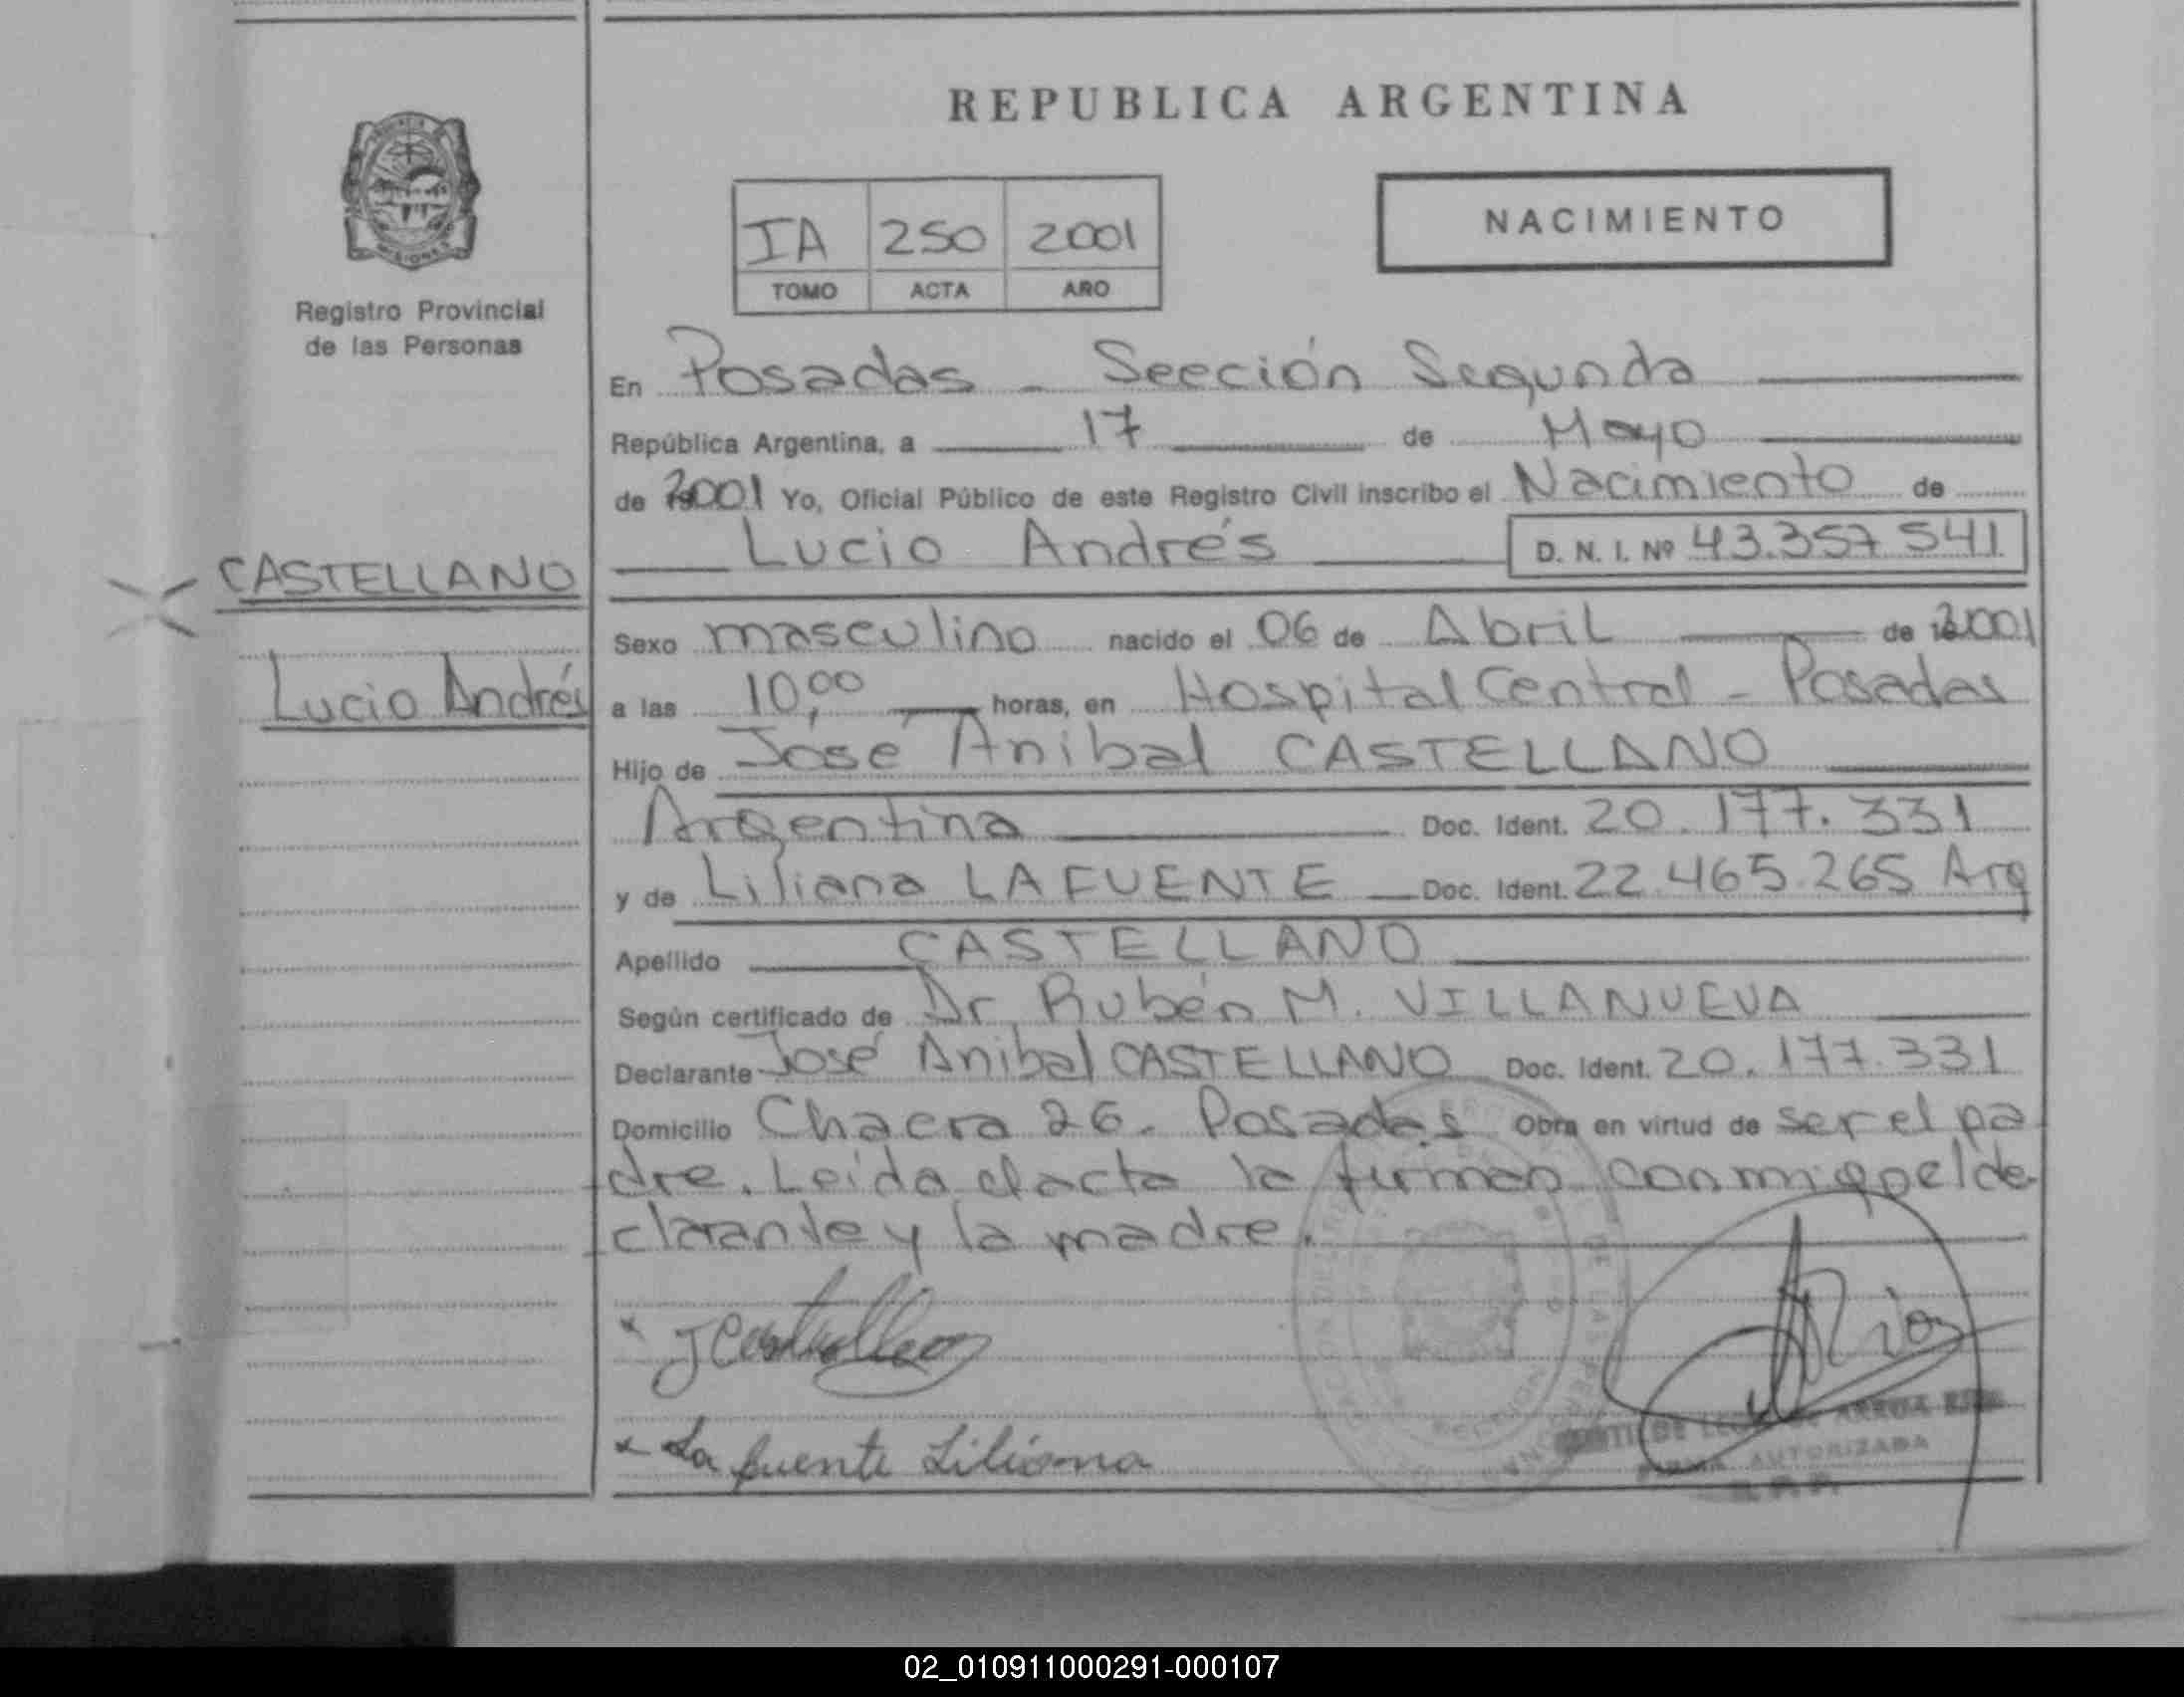 REPUBLICA ARGENTINA
IA 250 2001
TOMO ACTA AÑO
NACIMIENTO
Registro Provincial
de las Personas
En Posadas - Sección Segunda
República Argentina, a 17 de Mayo
de 2001 Yo, Oficial Público de este Registro Civil inscribo el Nacimiento de
Lucio Andrés D. N. I. Nº 43.357 541
CASTELLANO
Lucio Andrés
Sexo masculino nacido el 06 de Abril de 2001
a las 10,00 horas, en Hospital Central - Posadas
Hijo de José Anibal CASTELLANO
Argentina Doc. Ident. 20.177.331
y de Liliana LAFUENTE Doc. Ident. 22.465.265 Arg
Apellido CASTELLANO
Según certificado de Dr Rubén M. VILLANUEVA
Declarante José Anibal CASTELLANO Doc. Ident. 20.177.331
Domicilio Chacra 26. Posadas Obra en virtud de ser el pa
dre. Leída el acta la firman conmigo el de
clarante y la madre.
J Castellano
La fuente Liliana
ARRUA
FIRMA AUTORIZADA
02_010911000291-000107